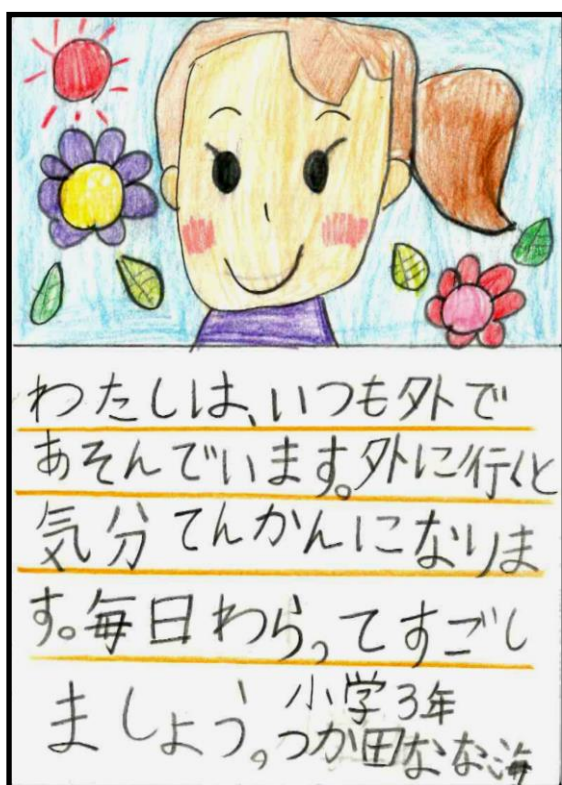 わたしは、いつも外で
あそんでいます。外に行くと
気分てんかんになりま
す。毎日わらってすごし
ましょう。
小学3年
つか田なな海